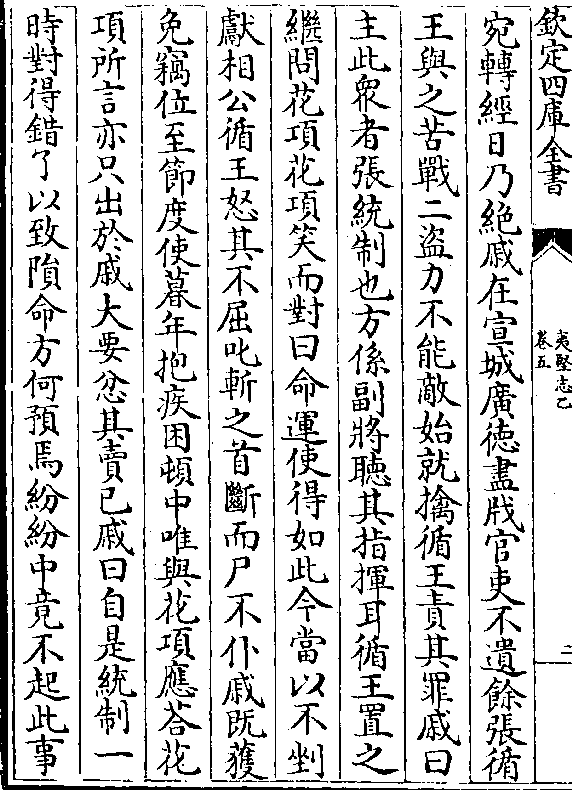 欽定四庫全書
夷堅志乙
卷五
二
宛轉經日乃絶戚在宣城廣徳盡戕官吏不遺餘張循
王與之苦戰二盜力不能敵始就擒循王責其罪戚曰
主此衆者張統制也方係副將聽其指揮耳循王置之
繼問花項花項笑而對曰命運使得如此今當以不剉
獻相公循王怒其不屈叱斬之首斷而尸不仆戚既獲
免竊位至節度使暮年抱疾困頓中唯與花項應荅花
項所言亦只出於戚大要忿其賣已戚曰自是統制一
時對得錯了以致隕命方何預焉紛紛中竟不起此事